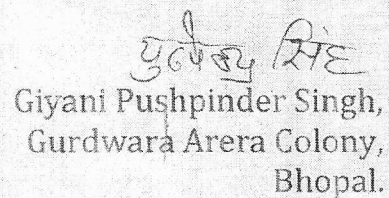 पुष्पेन्द्र सिंह
Giyani Pushpinder Singh,
Gurdwara Arera Colony,
Bhopal.